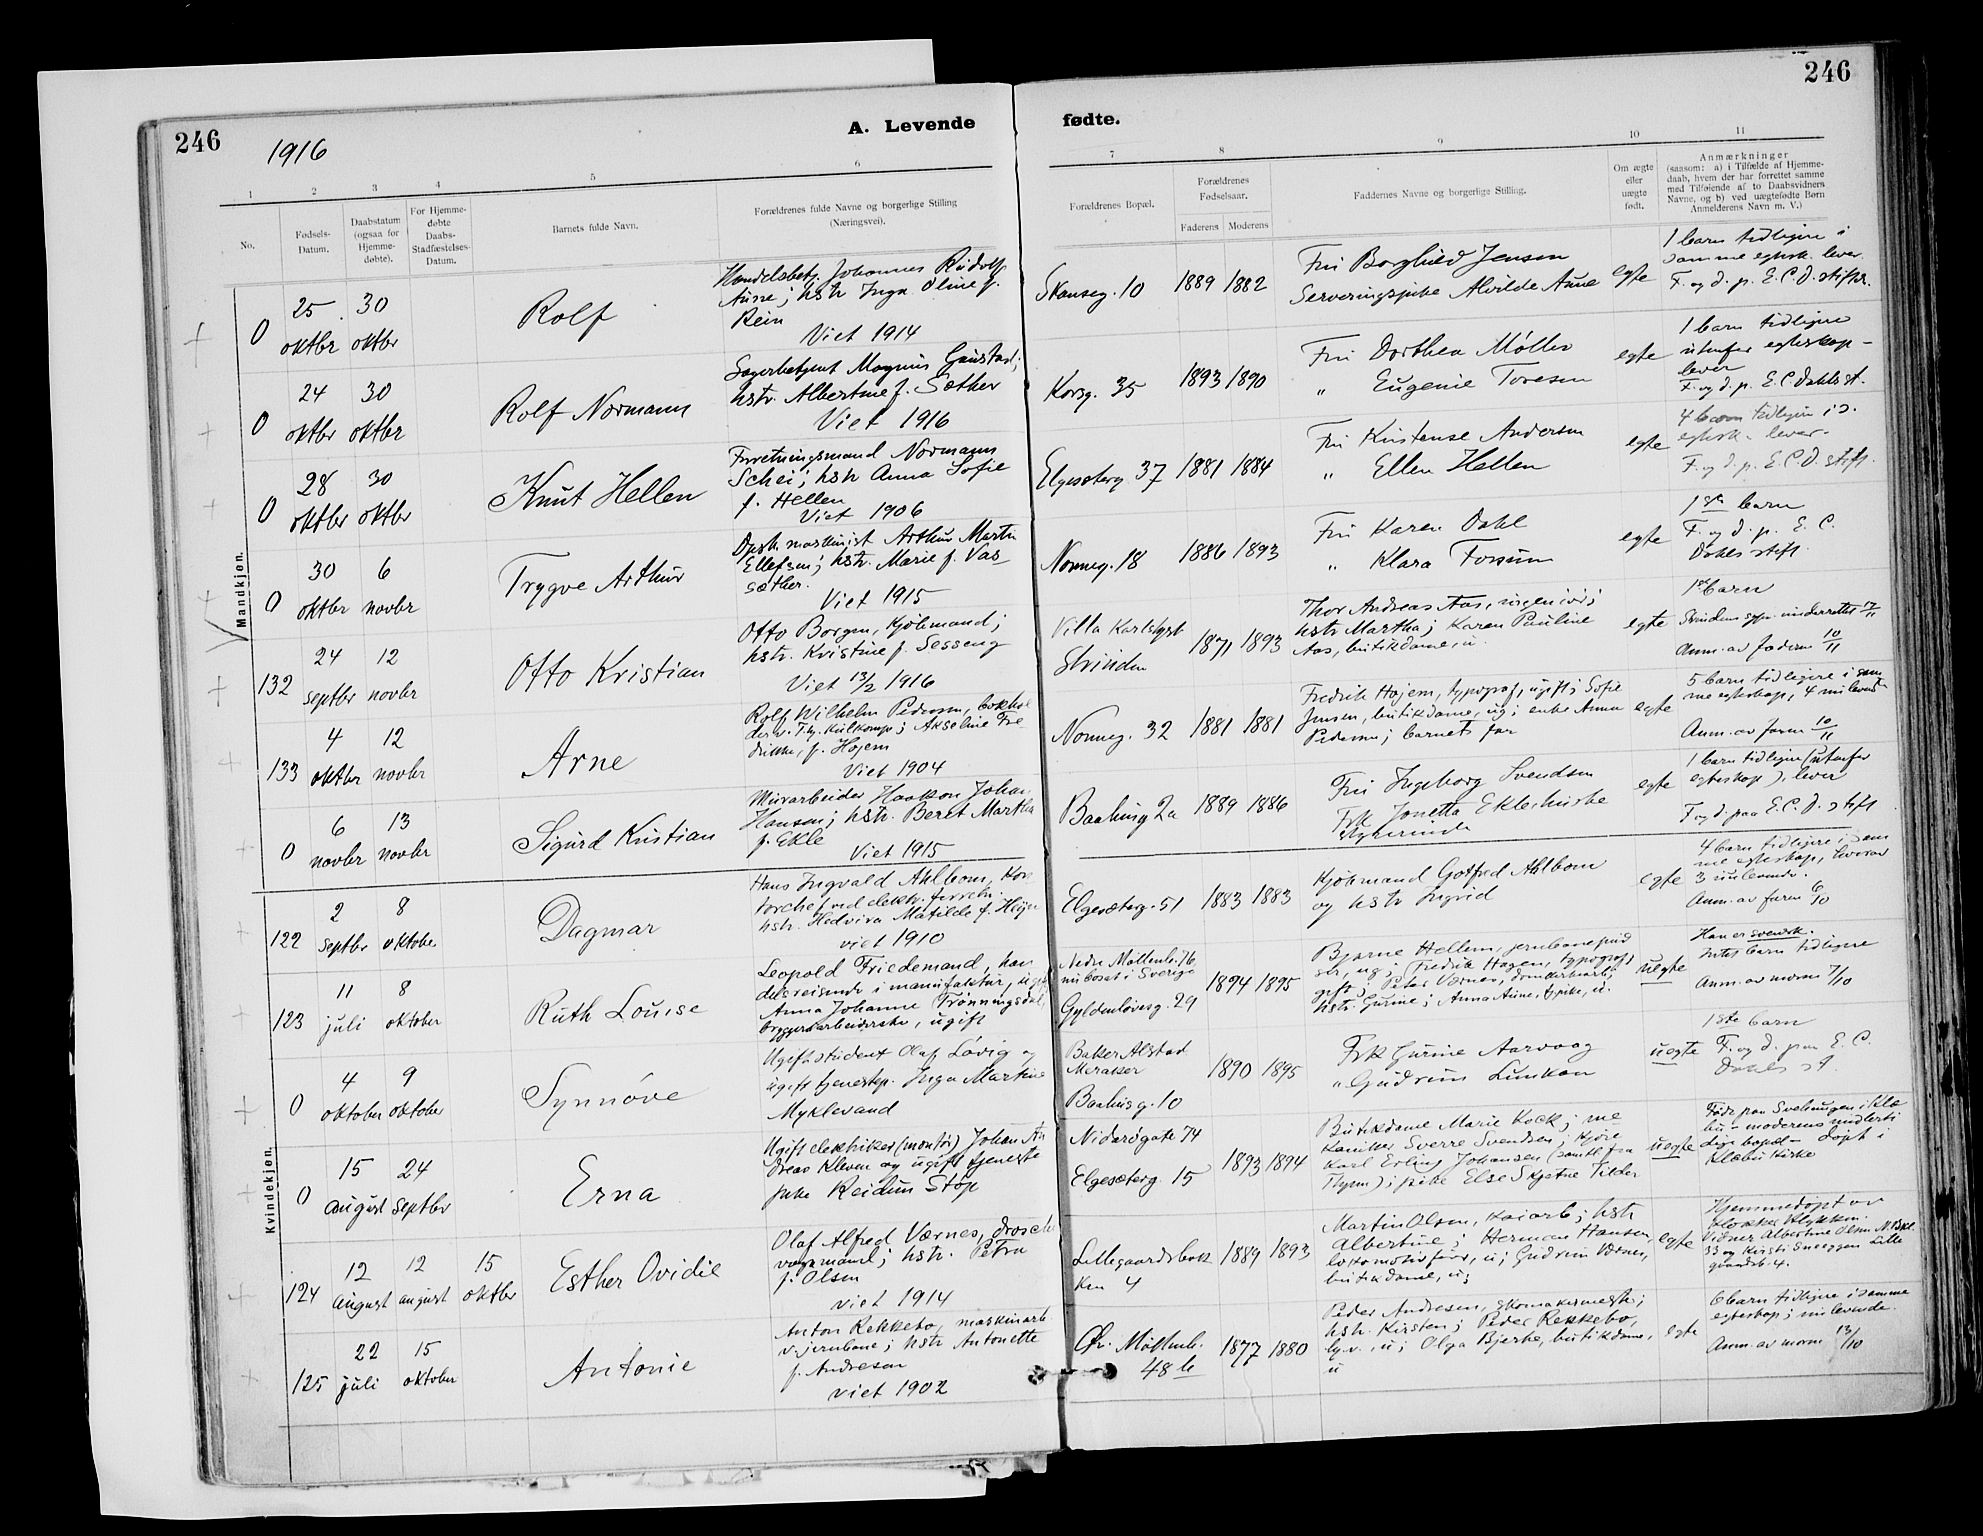 246
1916
A. Levende
fødte.
246
1
2
3
4
5
6
7
8
9
10
11
No.
Fødsels-
Datum.
Daabstatum
(ogsaa for
Hjemme-
døbte).
For Hjemme-
døbte
Daabs-
Stadfæstelses-
Datum.
Barnets fulde Navn.
Forældrenes fulde Navne og borgerlige Stilling
(Næringsvei).
Forældrenes Bopæl.
Forældrenes
Fødselsaar.
Faderens
Moderens
Faddernes Navne og borgerlige Stilling.
Om ægte
eller
uægte
født.
Anmærkninger
(saasom: a) i Tilfælde af Hjemme-
daab, hvem der har forrettet samme
med Tilføiende af to Daabsvidners
Navne, og b) ved uægtefødte Børn
Anmelderens Navn m. V.)
Mandkjøn.
0
25 oktbr
30 oktbr
Rolf
Handelsbetj. Johannes Rudolf
Aune; hstr Inga Oline f.
Rein
Viet 1914
Skanseg. 10
1889 1882
Fru Borghild Jensen
Serveringspike Alvilde Aune
egte
1 barn tidligere i
samme egtesk. lever.
F. og d. p. E. C. D. stifts.
0
24 oktbr
30 oktbr
Rolf Normann
Lagerbetjent Magnus Gaustad;
hstr. Albertine f. Sæther
Viet 1916
Korsg. 35
1893 1890
Fru Dorthea Møller
" Eugenie Toresen
egte
1 barn tidligere
utenfor egteskap -
lever
F. og d. p. E. C. Dahls st.
0
28 oktbr
30 oktbr
Knut Hellen
Forretningsmand Normann
Schei; hstr Anna Sofie
f. Hellen
Viet 1906
Elgesæterg 37
1881 1884
Fru Kristense Andersen
" Ellen Hellen
egte
4 barn tidligere i s.
egtesk. lever.
F. og d. p. E. C. D. stift.
0
30 oktbr
6 novbr
Trygve Arthur
maskinist Arthur Martin
Ellefsen; hstr. Marie f. Vas-
sæther.
Viet 1915
Nonneg. 18
1886 1893
Fru Karen Dahl
" Klara Forsum
egte
1ste barn
F. og d. p. E. C.
Dahls stift.
132
24 septbr
12 novbr
Otto Kristian
Otto Borgen, kjøbmand;
hstr. Kristine f. Sesseng
Viet 13/2 1916
Villa Karlslyst
Strinden
1871 1893
Thor Andreas Aas, ingeniør;
hstr Martha; Karen Pauline
Aas, butikdame, u.
egte
1ste barn
Strindens spr. underrettet 17/11
Anm. av faderen 10/11
133
4 oktbr
12 novbr
Arne
Rolf Wilhelm Pedersen, bokhol
der v. T.hj. Kulkomp; Akseline Fre
drikke, f. Hojem
Viet 1904
Nonneg. 32
1881 1881
Fredrik Hojem, typograf, ugift; Sofie
Jensen, butikdame, ug; enke Anna
Pedersen; barnets far
egte
5 barn tidligere i sam
me egteskap, 4 nulevende
Anm. av faren 10/11
0
6 novbr
13 novbr
Sigurd Kristian
Murarbeider Haakon Johan
Hansen; hstr. Beret Martha
f. Ekle
Viet 1915
Baahusg 2a
1889 1886
Fru Ingeborg Svendsen
Frk Jonetta Eklehuske
sykerinde
egte
1 barn tidligere (utenfor
egteskap), lever
F. og d. paa E. C. D. stift
Kvindekjøn.
122
2 septbr
8 oktober
Dagmar
Hans Ingvald Ahlbom, kon
torchef ved elektr. forretn.
hstr. Hedvira Matilde f. Hegn
viet 1910
Elgesæterg. 51
1883 1883
Kjøbmand Gotfred Ahlbom
og hstr Ingrid
egte
4 barn tidligere i sam
me egteskap, hvorav
3 nulevende.
Anm. av faren 6/10
123
11 juli
8 oktober
Ruth Louise
Leopold Friedemand, han
delsreisende i manufaktur, ugift
Anna Johanne Trønningsdal,
bryggeriarbeiderske, ugift
Nedre Møllenb. 76
nu bosat i Sverige
Gyldenløvesg. 29
1894 1895
Bjarne Hellem, jernbanepud
ser, ug; Fredrik Hagen, typograf,
gift; Peter Værnes,
hstr. Gurine; Anna Aune, pike, u.
uegte
Han er svensk.
Intet barn tidligere
Anm. av moren 7/10
0
4 oktober
9 oktober
Synnöve
Ugift student Olaf Lövig og
ugift tjenestep. Inga Martine
Myklevand
Baker Alstad
Meraker
Baahusg. 10
1890 1895
Frk Gurine Aarvaag
" Gudrun Lunkan
uegte
1ste barn
F. og d. paa E. C.
Dahls st.
0
15 august
24 septbr
Erna
Ugift elektriker (montør) Johan An
dreas Kleven og ugift tjeneste
pike Reidun Støp
Nidarøgate 74
Elgesæterg. 15
1893 1894
Butikdame Marie Kock; me
kaniker Sverre Svendsen; kjøre
Karl Erling Johansen (samtl. fra
Thjem); pike Else Skjetne Tiller
uegte
Født paa Svehaugen i Klæ
bu - moderens midlerti
dige bopæl - Døpt i
Klæbu kirke
124
12 august
12 august
15 oktbr
Esther Ovidie
Olaf Alfred Værnes, drosche
vognmand; hstr. Petra
f. Olsen
viet 1914
Lillegaardsbak
ken 4
1889 1893
Martin Olsen, kaiarb; hstr
Albertine; Herman Hansen,
lokomotivfører, u; Gudrun Værnes,
butikdame, u;
egte
Hjemmedøpt av
Klykken.
Vidner Albertine Olsen N. Bkl.
33 og Kirsti Sneeggen Lille
gaardsb. 4.
125
22 juli
15 oktober
Antonie
Anton Rekkebo, maskinarb.
v. jernbane; hstr Antonette
f. Andresen
viet 1902
Øv. Møllenb.
48 b
1877 1880
Peder Andresen, skomakermester;
hstr. Kirsten; Peder Rekkebo,
u; Olga Bjerke, butikdame,
u
egte
6 barn tidligere i samme
egteskap; nulevende.
Anm. av moren 13/10